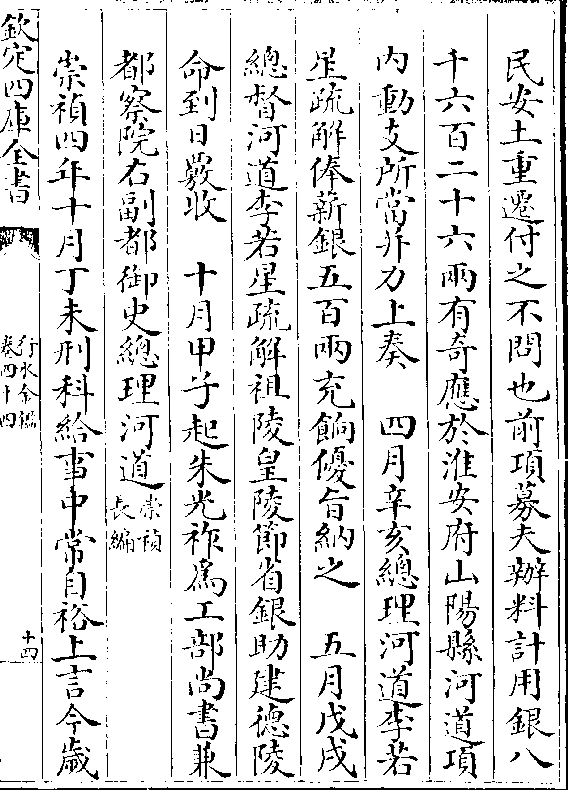 民安土重遷付之不問也前項募夫辦料計用銀八
千六百二十六兩有奇應於淮安府山陽縣河道項
内動支所當并力上奏　四月辛亥總理河道李若
星疏解俸薪銀五百兩充餉優旨納之　五月戊戌
總督河道李若星疏解祖陵皇陵節省銀助建德陵
命到日嚴收　十月甲子起朱光祚爲工部尚書兼
都察院右副都御史總理河道崇禎長編
崇禎四年十月丁未刑科給事中常自裕上言今歲
欽定四庫全書
行水金鑑
卷四十四
十四